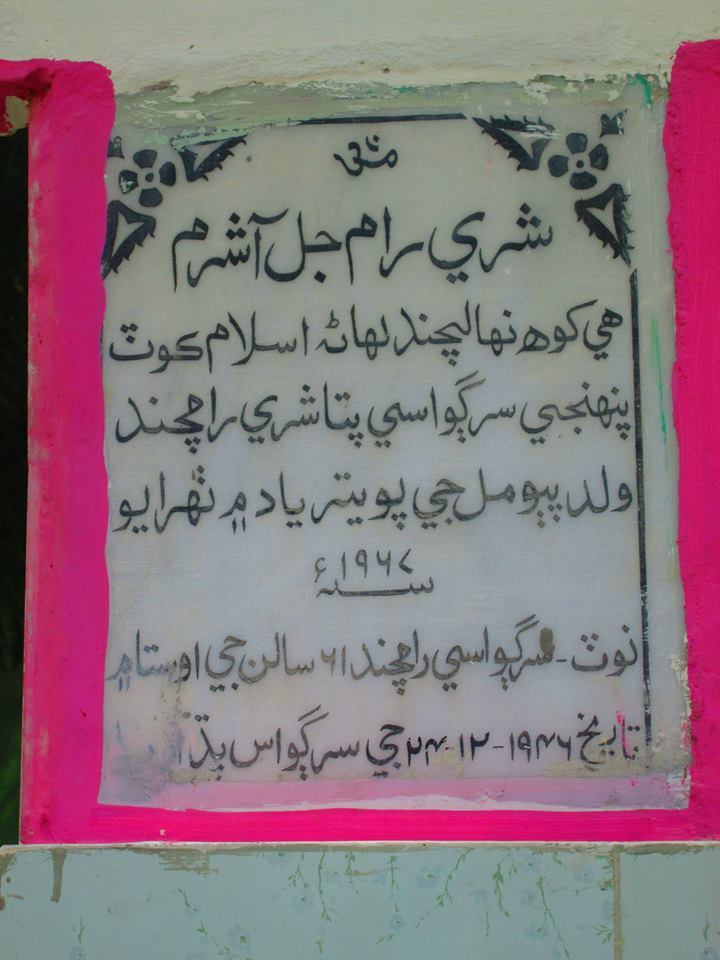 شري رام جل آشرم
هي کوھ نھالچند ڀھاڻہ اسلام ڪوٽ
پنھنجي سرڳواسي پتا شري رامچند
ولد پپومل جي پويتر ياد ۾ ٺھرايو
سنہ ۱۹۶۷ء
نوٽ - سرڳواسي رامچند ۶۱ سالن جي اوستا ۾
تاريخ ۱۹۴۶ - ۱۲ - ۲۴ جي سرڳواس